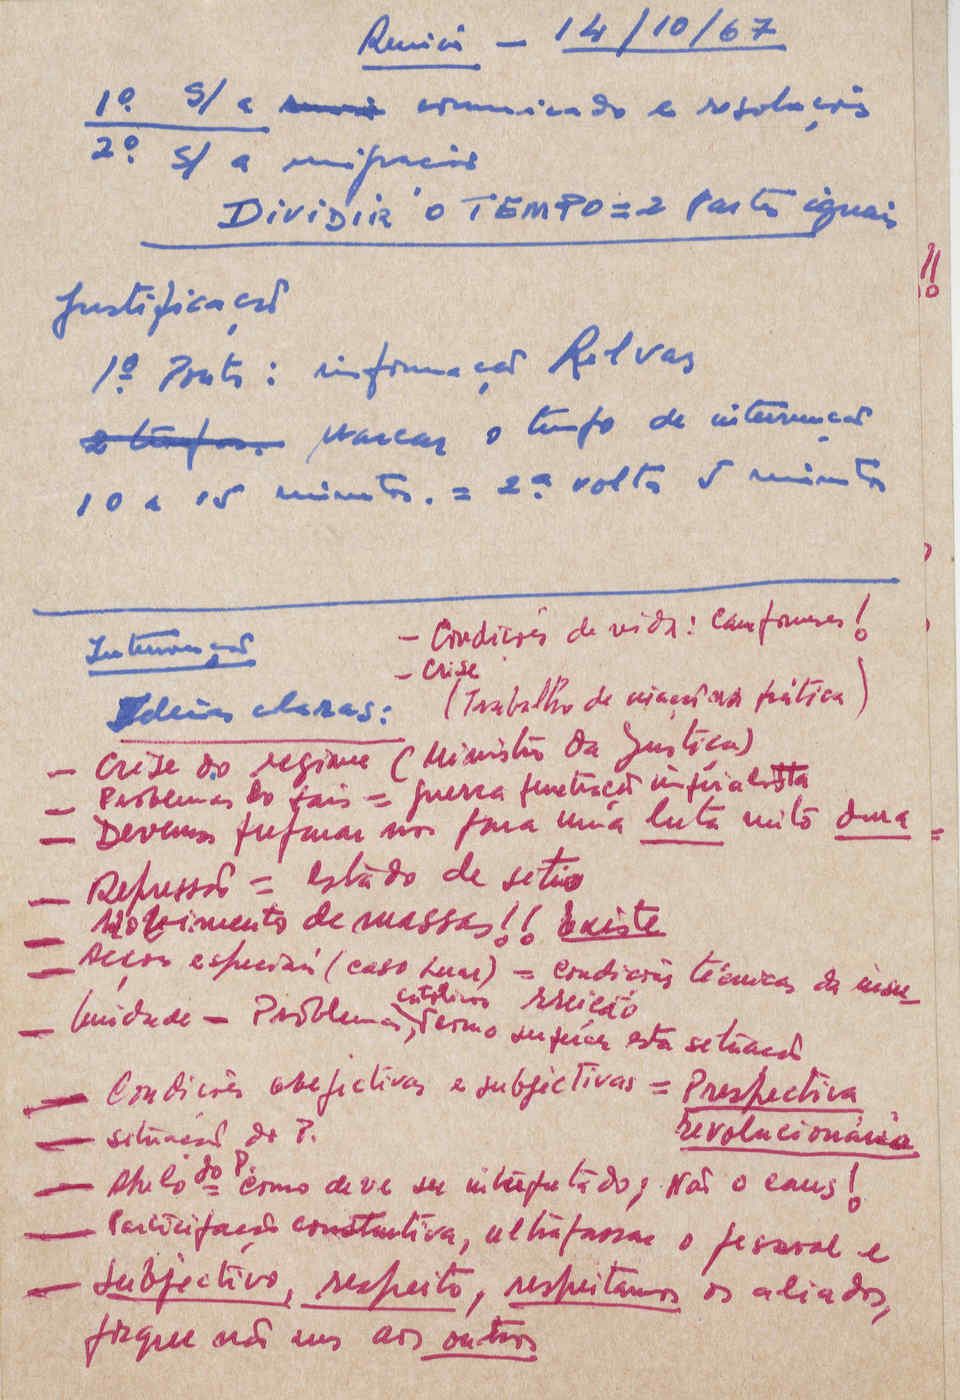 Reunião — 14/10/67
1º. S/ a comunicado e resoluções
2º. S/ a migração
DIVIDIR O TEMPO = 2 Partes iguais
!!
Justificação
1º Ponto: informação Relvas
2 tempos. Marcar o tempo de intervenção
10 a 15 minutos. = 2ª volta 5 minutos
Intervenção
— Condições de vida: camponeses!
— Crise
(Trabalho de na prática)
Ideias claras:
— Crise do regime (Ministro da Justiça)
— Problemas do País = guerra penetração imperialista
— Devemos preparar nos para uma luta mto dura =
— Repressão = estado de sitio
— Movimento de massas!! Existe
— Acções especiais (caso Luar) = condições técnicas da insu-
rreição
— Unidade — Problemas católicos, como superar esta situação
— Condições obejectivas e subjectivas = Prespectiva
revolucionária
— situação do P.
— Apelo do P. = como deve ser interpretado; Não o caus!
— Participação construtiva, ultrapassar o pessoal e
— Subjectivo, respeito, respeitamos os aliados,
porque não nus aos outros